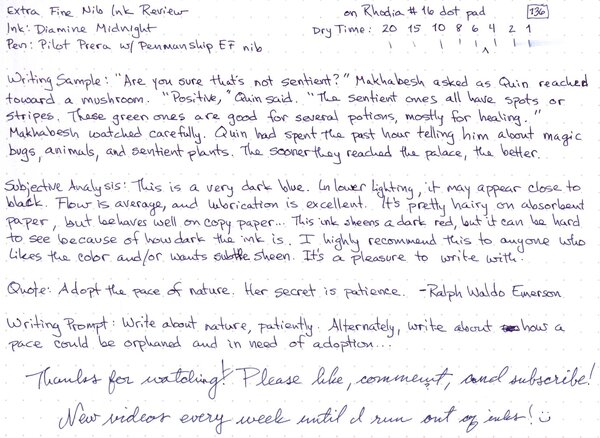 Extra Fine Nib Ink Review on Rhodia #16 dot pad 136
Ink: Diamine Midnight Dry Time: 20 15 10 8 6 4 2 1
Pen: Pilot Prera w/ Penmanship EF nib
Writing Sample: "Are you sure that's not sentient?" Makhabesh asked as Quin reached
toward a mushroom. "Positive," Quin said. "The sentient ones all have spots or
stripes. These green ones are good for several potions, mostly for healing."
Makhabesh watched carefully. Quin had spent the past hour telling him about magic
bugs, animals, and sentient plants. The sooner they reached the palace, the better.
Subjective Analysis: This is a very dark blue. In lower lighting, it may appear close to
black. Flow is average, and lubrication is excellent. It's pretty hairy on absorbent
paper, but behaves well on copy paper... This ink sheens a dark red, but it can be hard
to see because of how dark the ink is. I highly recommend this to anyone who
likes the color and/or wants subtle sheen. It's a pleasure to write with.
Quote: Adopt the pace of nature. Her secret is patience. -Ralph Waldo Emerson
Writing Prompt: Write about nature, patiently. Alternately, write about how a
pace could be orphaned and in need of adoption...
Thanks for watching! Please like, comment, and subscribe!
New videos every week until I run out of inks! :)